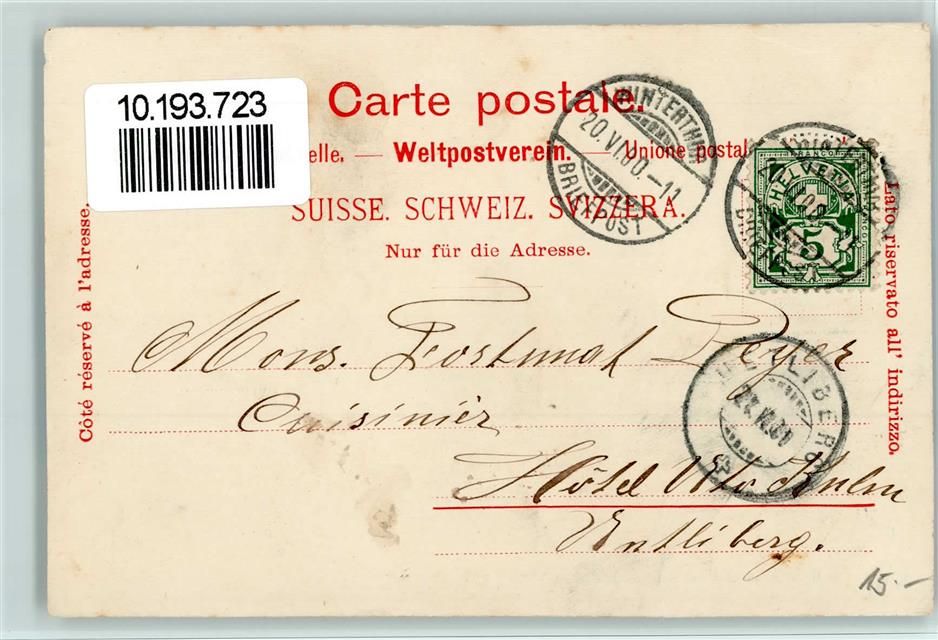 10.193.723
Carte postale.
elle. — Weltpostverein. — Unione postal
SUISSE. SCHWEIZ. SVIZZERA.
Nur für die Adresse.
Côté reservé à l'adresse.
Lato riservato all' indirizzo.
WINTERTHUR
20.VI.
BRIEFPOST
HELVETIA
FRANCO
5
Mons.
Cuisinier
Hôtel Uto Kulm
Uetliberg.
UETLIBERG
15.-